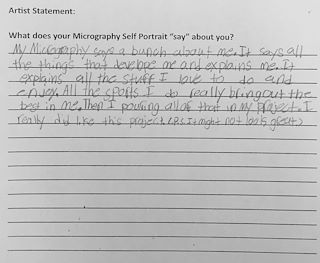 Artist Statement:
What does your Micrography Self Portrait "say" about you?
My Micrography says a bunch about me. It says all
the things that develope me and explains me. It
explains all the stuff I love to do and
enjoy. All the sports I do really bring out the
best in me. Then I pouring all of that in my project. I
really did like this project. (P.S. It might not look great)